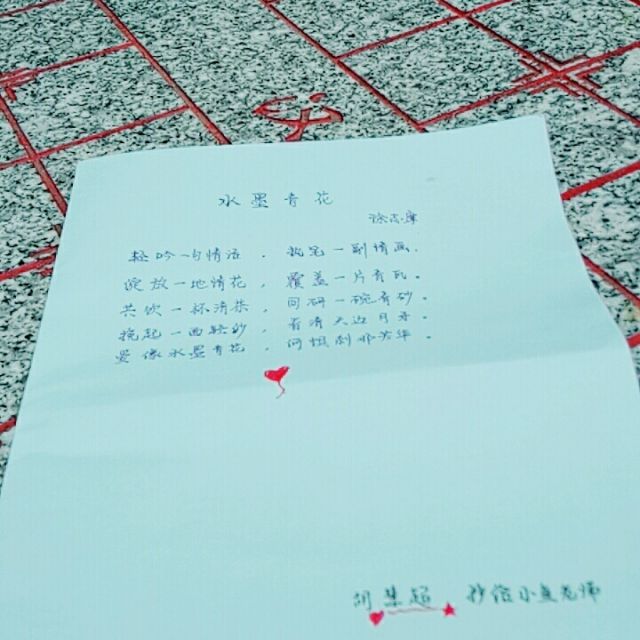 水墨青花
徐志摩
轻吟一句情话，执笔一副情画。
绽放一地情花，覆盖一片青瓦。
共饮一杯清茶，同研一碗青砂。
挽起一面轻纱，看清天边月牙。
爱像水墨青花，何惧刹那芳华。
胡 超 抄给小鱼老师